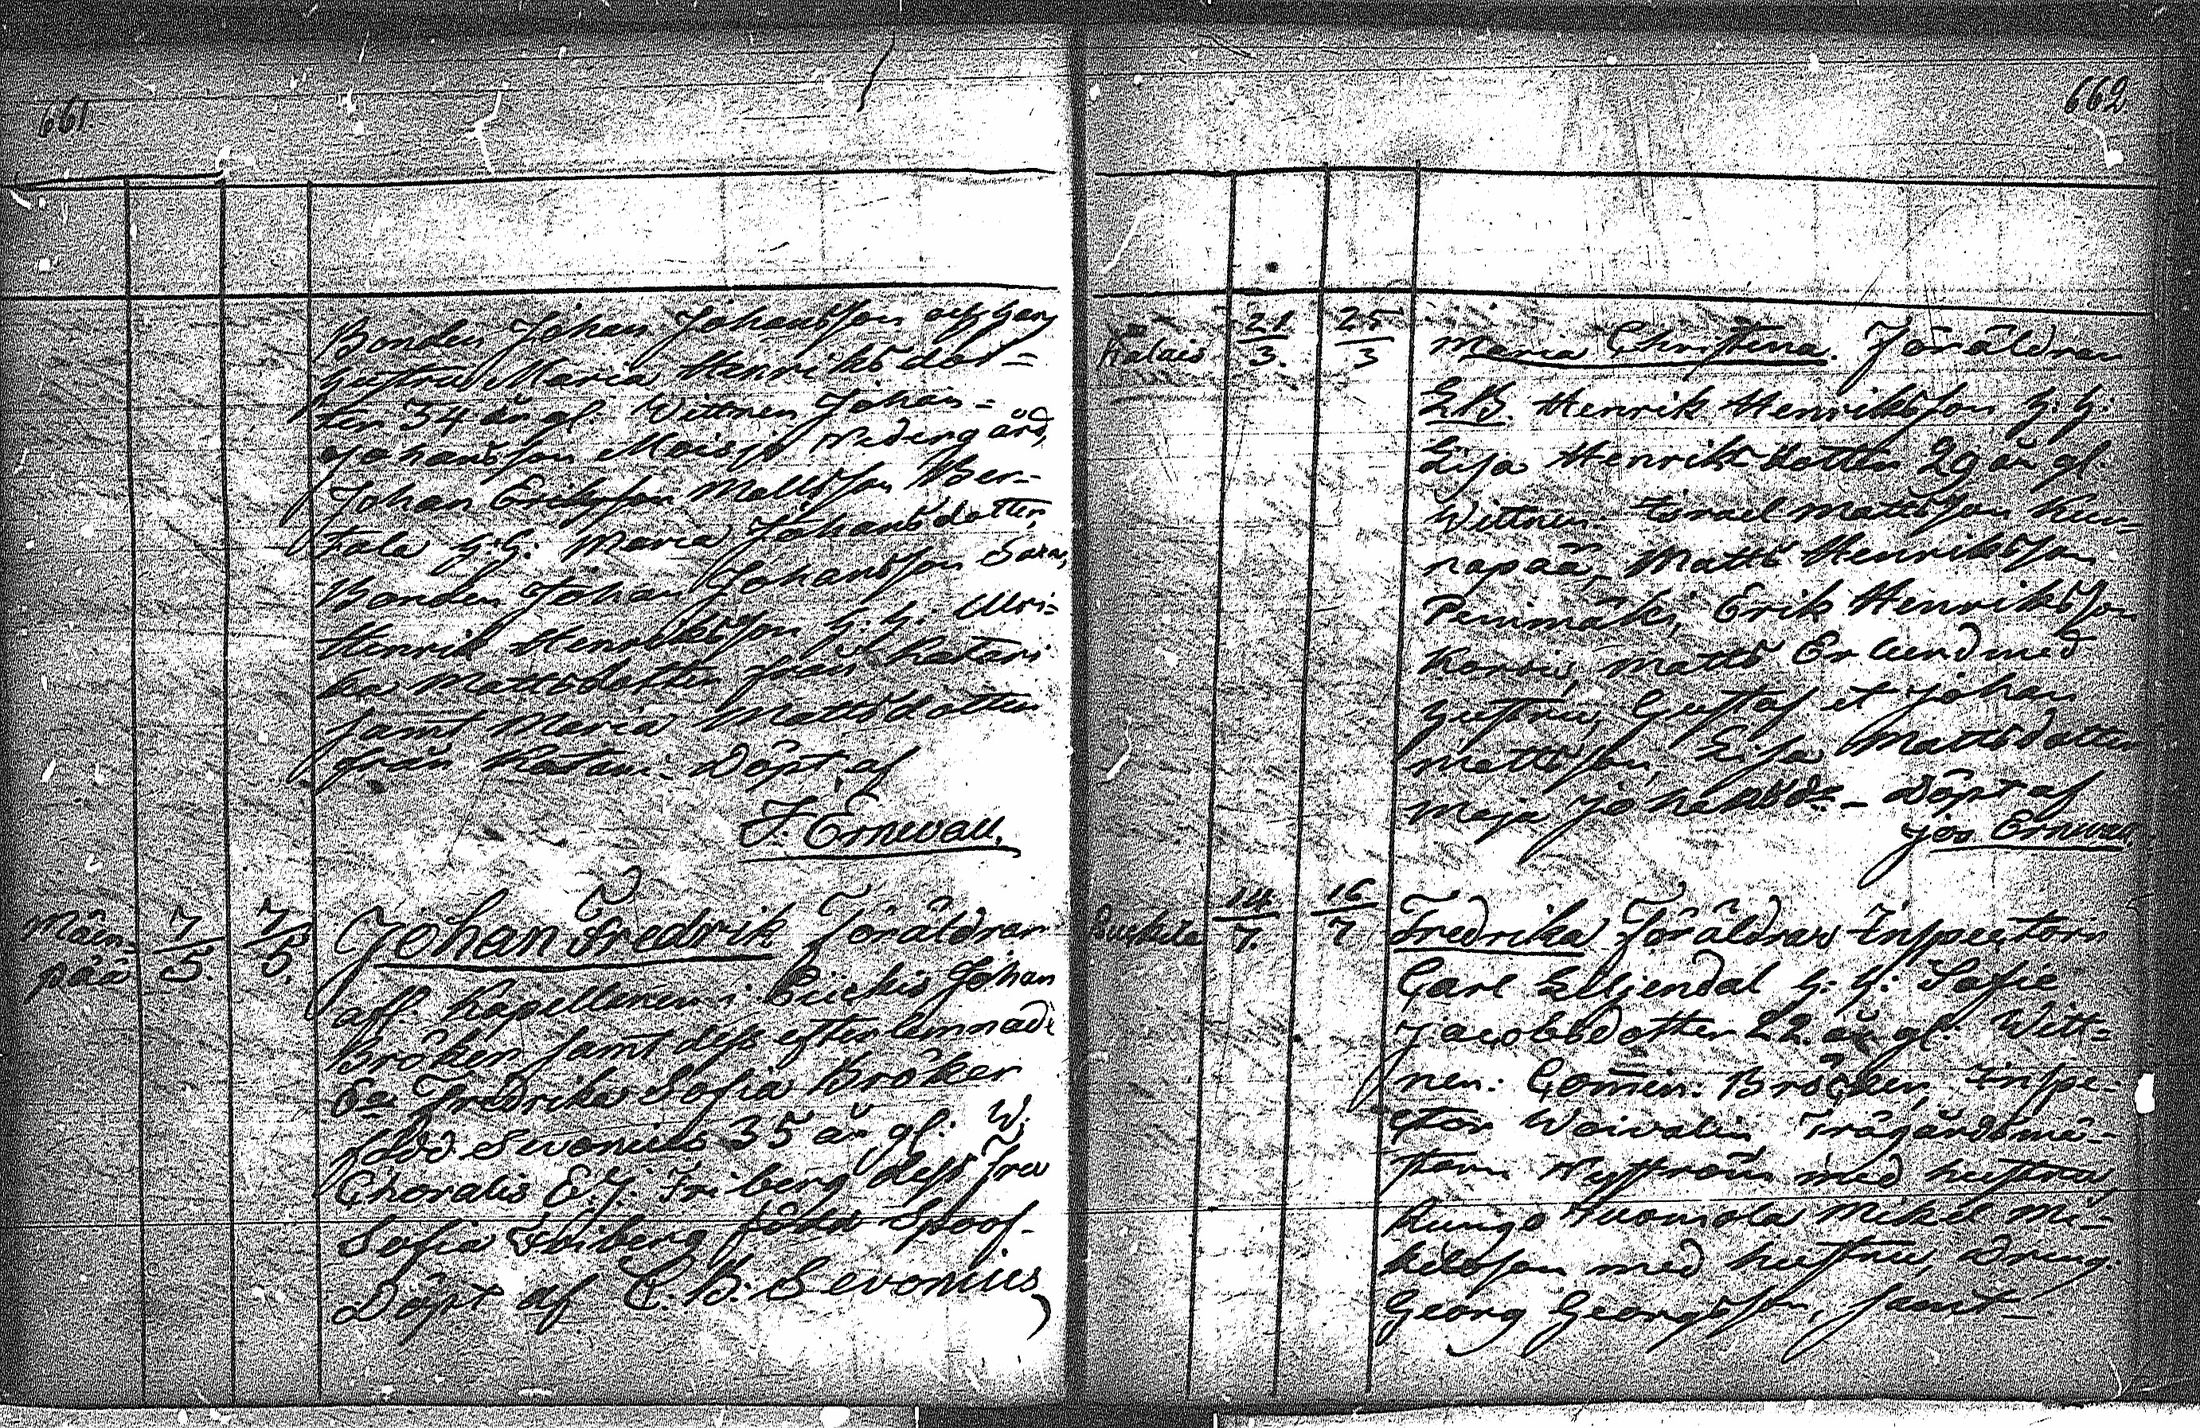 661.
Bonden Johan Johansson och hans
hustru Maria Henriksdot=
ter 34 år gl. Wittnen Johan
Johansson Moisjo Nedengård,
Johan Eriksson Mattsson Ber-
tala h: h: Maria Johansdotter,
Bonden Johan Johansson
Henrik Henriksson h: h: Ulri=
ka Mattsdotter från
samt Maria Mattsdotter
från Döpt af
J. Ernwall.
Mäen-
pää
7/5 7/5
Johan Fredrik Föräldrar
aff. Kapellanen i Johan
Bröker samt dess efterlemnade
Ea Fredrika Sofia Bröker
född Sevonius 35 år gl: W.
Choralis E. J. Friberg dess Fru
Sofia Friberg född Spoof.
Döpt af C. B. Sevonius
662
21/3. 25/3
Maria Christina. Föräldrar
Henrik Henriksson h: h:
Lisa Henriksdotter 29 år gl.
Wittnen Israel Mattsson Kun=
napää, Matts Henriksson
Penimäki, Erik Henriksson
Korsi, Matts Erlund med
hustru, Gustaf et Johan
Mattsson, Lisa Mattsdotter
Maja Johansdr - Döpt af
Jos Ernwall
14/7. 16/7
Fredrika Föräldrar Inspectorn
Carl Liljendal h: h: Sofie
Jacobsdotter 22. år gl. Witt=
nen: Com̄in: Bröcker, Inspe-
ctor Woivalin Trägårdsmä-
starn Nyström med hustru,
Mikel Mi-
kelsson med hustru, dreng.
Georg Georgsson, samt